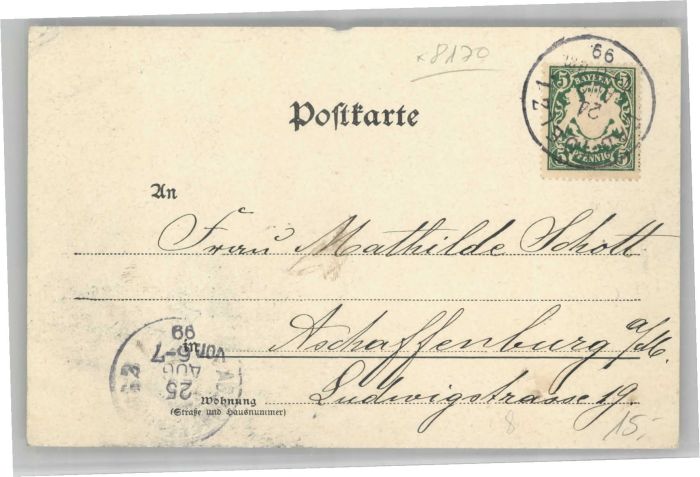 x8170
99
24
5 BAYERN 5
5 PFENNIG 5
Postkarte
An
Frau Mathilde Schott
in Aschaffenburg a/M.
Wohnung
(Straße und Hausnummer)
Ludwigstrasse 19.
25
AUG
VOR. 6-7
99
8
15.-